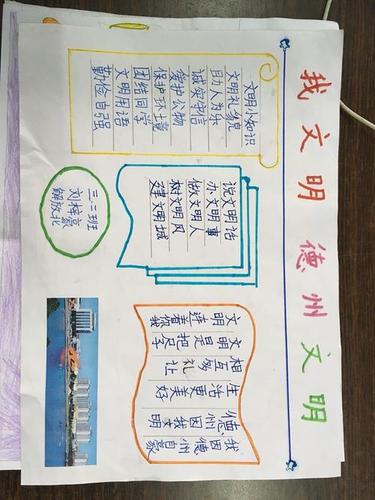 我文明 德州文明
文明小知识
文明礼貌
助人为乐
诚实守信
爱护公物
保护环境
团结同学
文明用语
勤俭自强
说文明话
办文明事
做文明人
树文明风
建文明城
三.二班
刘梓豪
解放北
文明连着你我
文明是把尺子
相互礼让
生活更美好
德州因我文明
我因德州自豪